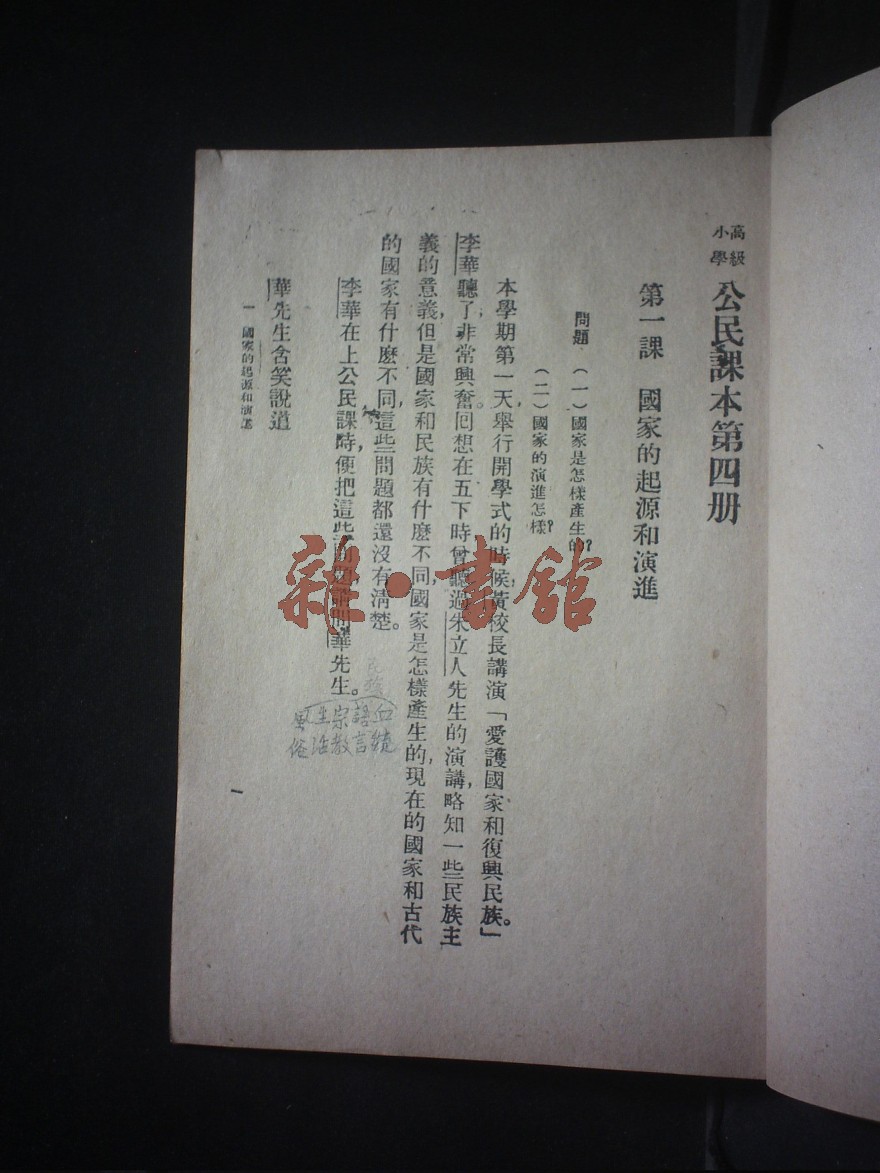 高級
小學
公民課本第四册
第一課　國家的起源和演進
問題　(一)國家是怎樣產生的?
(二)國家的演進怎樣?
本學期第一天,舉行開學式的時候,黃校長講演「愛護國家和復興民族。」
李華聽了,非常興奮。回想在五下時曾聽過朱立人先生的演講,略知一些民族主
義的意義,但是國家和民族有什麼不同,國家是怎樣產生的,現在的國家和古代
的國家有什麼不同,這些問題都還沒有清楚。
李華在上公民課時,便把這些問題請問華先生。
華先生含笑說道
民族
血統
語言
宗教
生活
風俗
一　國家的起源和演進
一
雜·書館